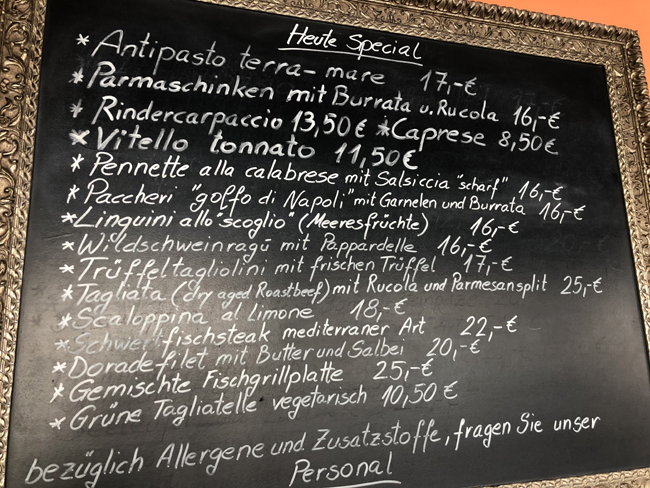 Heute Special
* Antipasto terra-mare 17,-€
* Parmaschinken mit Burrata u. Rucola 16,-€
* Rindercarpaccio 13,50€ * Caprese 8,50€
* Vitello tonnato 11,50€
* Pennette alla calabrese mit Salsiccia "scharf" 16,-€
* Paccheri "golfo di Napoli" mit Garnelen und Burrata 16,-€
* Linguini allo "scoglio" (Meeresfrüchte) 16,-€
* Wildschweinragú mit Pappardelle 16,-€
* Trüffeltagliolini mit frischen Trüffel 17,-€
* Tagliata (dry aged Roastbeef) mit Rucola und Parmesansplit 25,-€
* Scaloppina al limone 18,-€
* Schwertfischsteak mediterraner Art 22,-€
* Doradefilet mit Butter und Salbei 20,-€
* Gemischte Fischgrillplatte 25,-€
* Grüne Tagliatelle vegetarisch 10,50€
bezüglich Allergene und Zusatzstoffe, fragen Sie unser
Personal